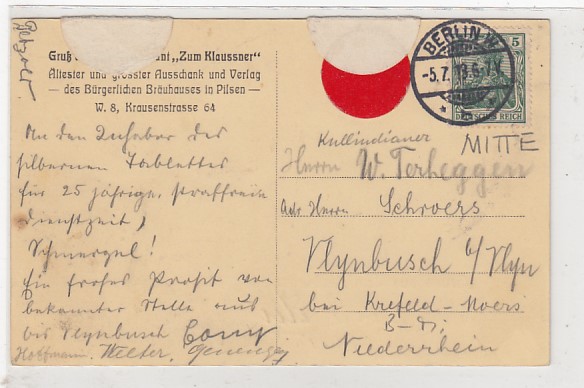 Petzold
Gruß "Zum Klaussner"
Ältester und grösster Ausschank und Verlag
— des Bürgerlichen Bräuhauses in Pilsen —
W. 8, Krausenstrasse 64
BERLIN W
-5.7.13.6-7V.
5
DEUTSCHES REICH
MITTE
An den Inhaber des
silbernen Tablettes
für 25 jährige straffreie
Dienstzeit,
Schmergel!
Ein frohes Prosit von
bekannter Stelle aus
bis Vlynbusch
Hoffmann. Welter,
Kullindianer
Herrn W. Terheggen
Adr Herrn Schroers
Vlynbusch b/Vlyn
bei Krefeld-Moers
Niederrhein